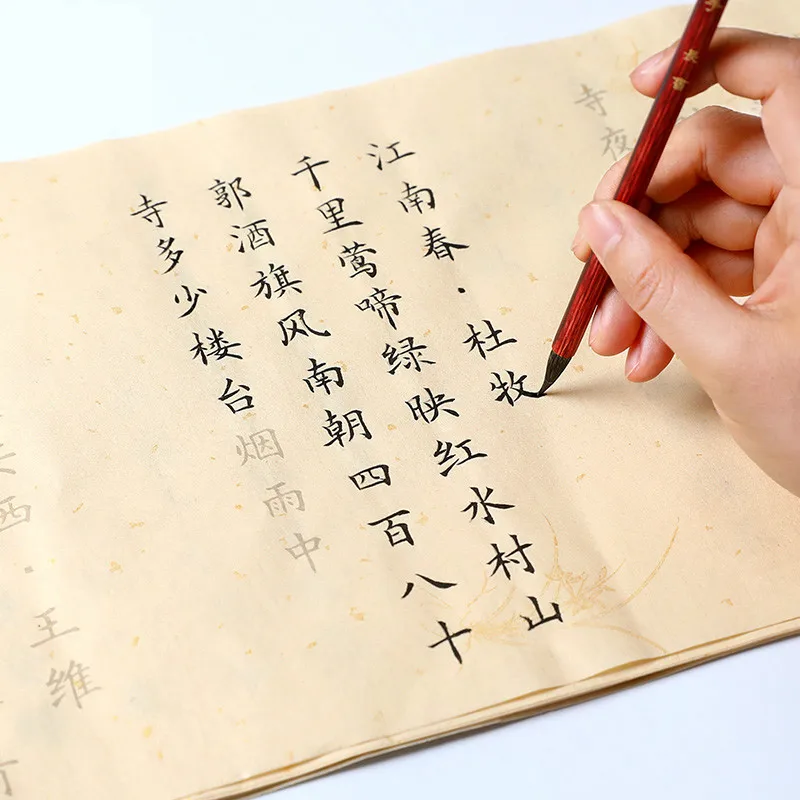 江南春·杜牧
千里莺啼绿映红水村山
郭酒旗风南朝四百八十
寺多少楼台烟雨中
寺夜
西·王维